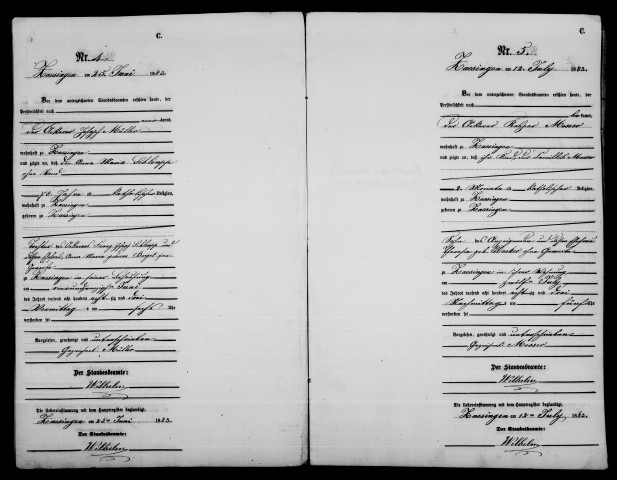 C.
Nr. 4.
Zaessingen am 25. Juni 1883.
Vor dem unterzeichneten Standesbeamten erschien heute, der
Persönlichkeit nach
kannt,
der Ackerer Joseph Müller
wohnhaft zu Zaessingen
und zeigte an, daß die Anna Maria Schlupp
ohne
70 Jahre alt, katholischer Religion,
wohnhaft zu Zaessingen
geboren zu Zaessingen
Tochter des Ackerers Franz Joseph Schlupp und
dessen Ehefrau Anna Maria geborene
zu Zaessingen in seiner Behausung
am vierundzwanzigsten Juni
des Jahres tausend acht hundert achtzig und drei
Vormittag um Uhr
verstorben sei
Vorgelesen, genehmigt und unterschrieben
Gezeichnet: Müller
Der Standesbeamte:
Wilhelm
Die Uebereinstimmung mit dem Hauptregister beglaubigt.
Zaessingen am 25ten Juni 1883
Der Standesbeamte:
Wilhelm
C.
Nr. 5.
Zaessingen am 12. July 1883.
Vor dem unterzeichneten Standesbeamten erschien heute, der
Persönlichkeit nach
bekannt,
der Ackerer Messer
wohnhaft zu Zaessingen
und zeigte an, daß ein Kind, der Messer
2 Monate alt, katholischer Religion,
wohnhaft zu Zaessingen
geboren zu Zaessingen
Sohn des Anzeigenden und dessen Ehefrau
Theresia geb. ohne Gewerbe
zu Zaessingen in ihrer Wohnung
am zwölften July
des Jahres tausend acht hundert achtzig und drei
Nachmittag um fünf Uhr
verstorben sei
Vorgelesen, genehmigt und unterschrieben
Gezeichnet: Messer
Der Standesbeamte:
Wilhelm
Die Uebereinstimmung mit dem Hauptregister beglaubigt.
Zaessingen am 12ten July 1883.
Der Standesbeamte:
Wilhelm